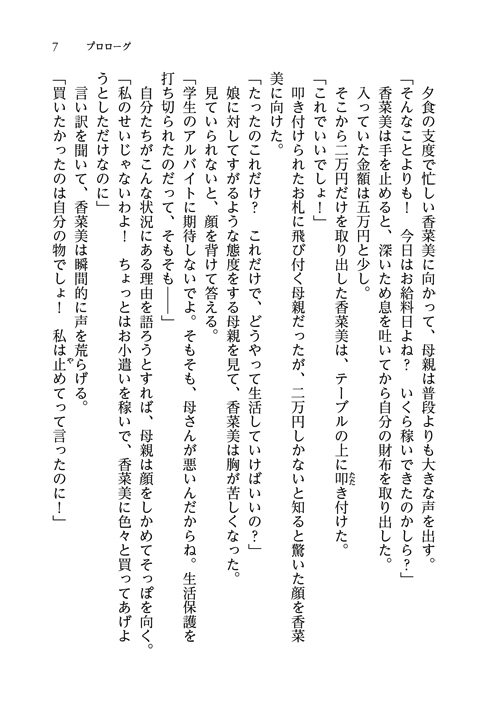 7　プロローグ
　夕食の支度で忙しい香菜美に向かって、母親は普段よりも大きな声を出す。
「そんなことよりも！　今日はお給料日よね？　いくら稼いできたのかしら？」
　香菜美は手を止めると、深いため息を吐いてから自分の財布を取り出した。
　入っていた金額は五万円と少し。
　そこから二万円だけを取り出した香菜美は、テーブルの上に叩き付けた。
「これでいいでしょ！」
　叩き付けられたお札に飛び付く母親だったが、二万円しかないと知ると驚いた顔を香菜
美に向けた。
「たったのこれだけ？　これだけで、どうやって生活していけばいいの？」
　娘に対してすがるような態度をする母親を見て、香菜美は胸が苦しくなった。
　見ていられないと、顔を背けて答える。
「学生のアルバイトに期待しないでよ。そもそも、母さんが悪いんだからね。生活保護を
打ち切られたのだって、そもそも――」
　自分たちがこんな状況にある理由を語ろうとすれば、母親は顔をしかめてそっぽを向く。
「私のせいじゃないわよ！　ちょっとはお小遣いを稼いで、香菜美に色々と買ってあげよ
うとしただけなのに」
　言い訳を聞いて、香菜美は瞬間的に声を荒らげる。
「買いたかったのは自分の物でしょ！　私は止めてって言ったのに！」